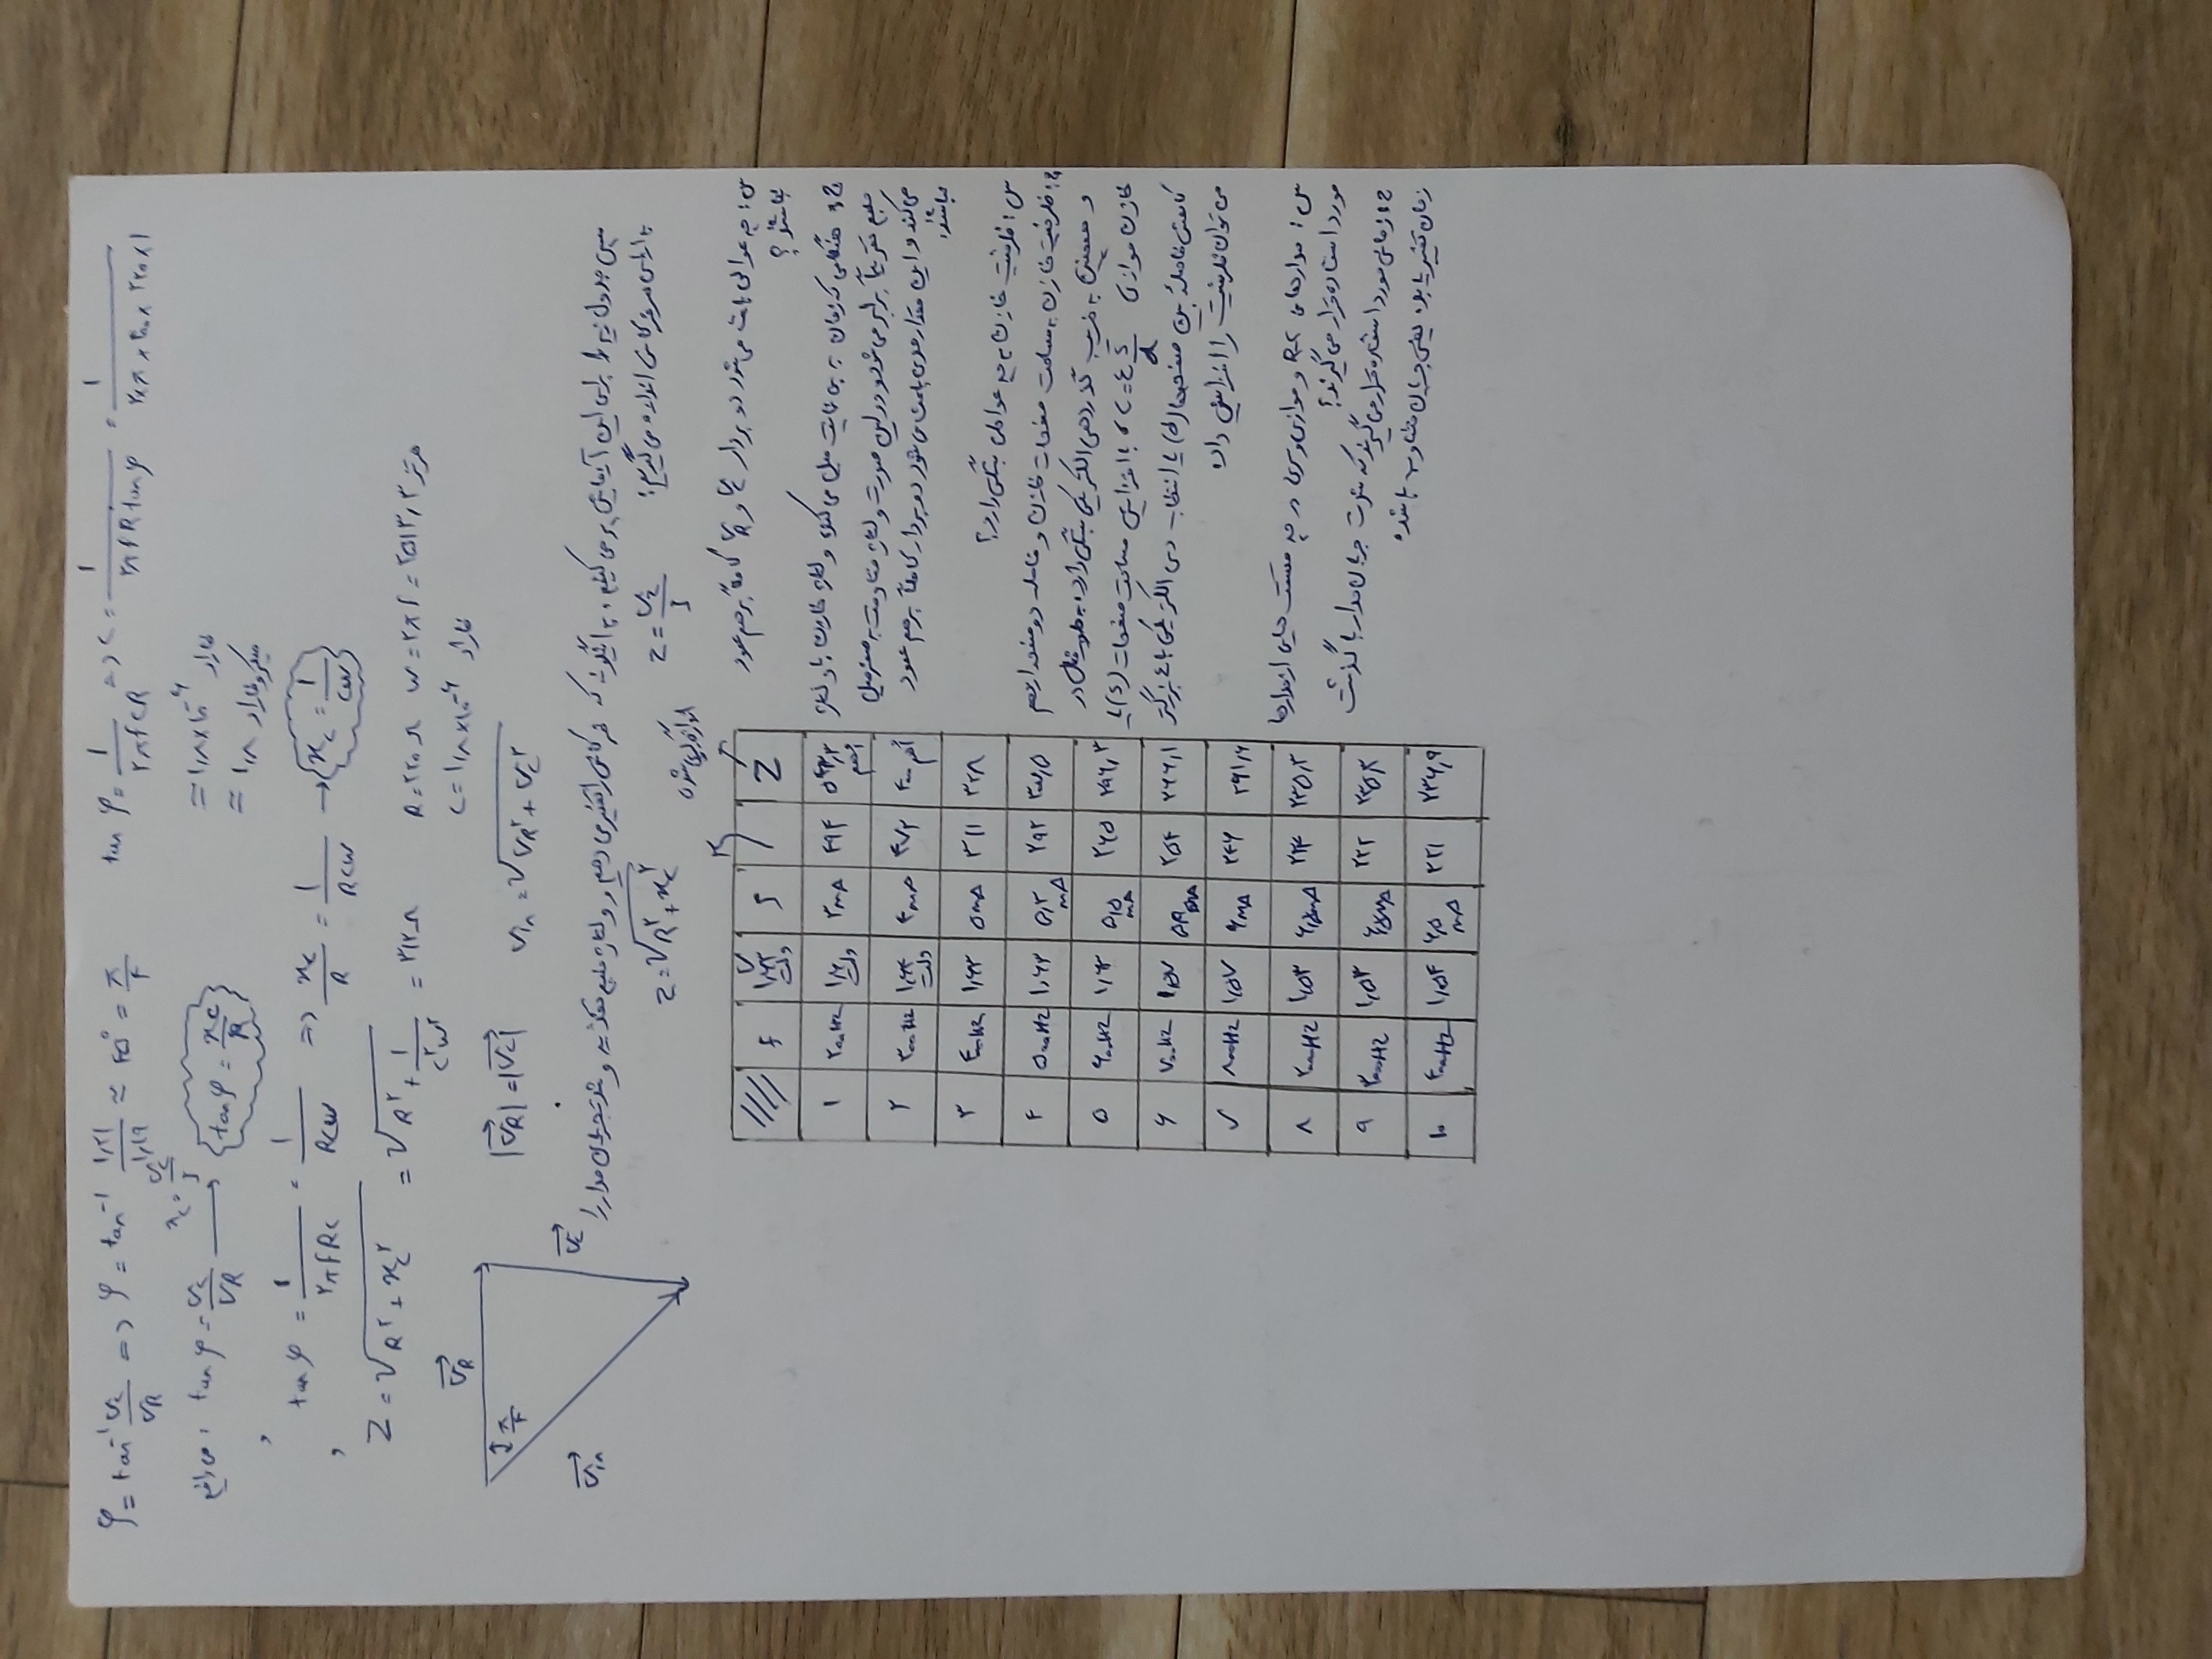 φ = tan⁻¹ Vc/VR => φ = tan⁻¹ ۱٫۲۱/۱٫۱۹ ≈ ۴۵° = π/۴
tan φ = ۱/۲πfCR => C = ۱/۲πfR tanφ = ۱/۲×π×۴۰۰×۲۲۰×۱
≈ ۱٫۸×۱۰⁻⁶ فاراد
≈ ۱٫۸ میکروفاراد
می دانیم : tan φ = Vc/VR → xc = Vc/I tanφ = xc/R
, tan φ = ۱/۲πfRc = ۱/Rcω => xc/R = ۱/Rcω → xc = ۱/cω
, Z = √R۲ + xc۲ = √R۲ + ۱/c۲ω۲ = ۳۱۲Ω R = ۲۲۰ Ω ω = ۲πf = ۲۵۱۳٫۳ هرتز
c = ۱٫۸×۱۰⁻⁶ فاراد
VR
π/۴
Vin
Vc
|VR| = |Vc| Vin = √VR۲ + Vc۲
سپس جدول زیر را برای این آزمایش پر می کنیم، به اینگونه که فرکانس را تغییر می دهیم و ولتاژ منبع تغذیه و شدت جریان مدار را
به ازای هر فرکانس اندازه می گیریم: Z = Vz/I
Z = √R۲ + xc۲
اندازه گیری شده
//// f V ۱٫۶۳ ولت I Z
۱ ۲۰۰Hz ۱٫۶ ولت ۳mA ۴۹۴ ۵۴۳٫۳ اهم
۲ ۳۰۰Hz ۱٫۶۴ ولت ۴mA ۳۷۲ ۴۰۰ اهم
۳ ۴۰۰Hz ۱٫۶۳ ۵mA ۳۱۱ ۳۲۸
۴ ۵۰۰Hz ۱٫۶۳ ۵٫۳ mA ۲۹۲ ۳۰۷٫۵
۵ ۶۰۰Hz ۱٫۶۳ ۵٫۵ mA ۲۶۵ ۲۹۶٫۳
۶ ۷۰۰Hz ۱٫۵۷ ۵۹ mA ۲۵۴ ۲۶۶٫۱
۷ ۸۰۰Hz ۱٫۵۷ ۶mA ۲۴۶ ۲۶۱٫۶
۸ ۲۰۰۰Hz ۱٫۵۳ ۶٫۵mA ۲۲۴ ۲۳۵٫۳
۹ ۳۰۰۰Hz ۱٫۵۳ ۶٫۵mA ۲۲۲ ۲۳۵٫۳
۱۰ ۴۰۰۰Hz ۱٫۵۴ ۶٫۵ mA ۲۲۱ ۲۳۶٫۹
س: چه عواملی باعث می شود دو بردار Vc و VR کاملاً برهم عمود
نباشند؟
ج: هنگامی که زمان به بی نهایت میل می کند، ولتاژ خازن با ولتاژ
منبع تقریباً برابر می شود و در این صورت ولتاژ مقاومت به صفر میل
می کند و این مقدار حدی باعث می شود دو بردار کاملاً برهم عمود
نباشند.
س: ظرفیت خازن به چه عواملی بستگی دارد؟
ج: ظرفیت خازن به مساحت صفحات خازن و فاصله دو صفحه از هم
و همچنین به ضریب گذردهی الکتریکی بستگی دارد. به طور مثال در
خازن موازی C = ε s/d ، با افزایش مساحت صفحات (s) یا
کاهش فاصلهٔ بین صفحه‌ها (d) یا انتخاب دی الکتریکی با ε بزرگتر
می توان ظرفیت را افزایش داد.
س: مدارهای R-C موازی و سری در چه قسمت هایی از مدارها
مورد استفاده قرار می گیرند؟
ج: زمانی مورد استفاده قرار می گیرند که شدت جریان مدار با گذشت
زمان تغییر یابد. یعنی جریان متناوب باشد.